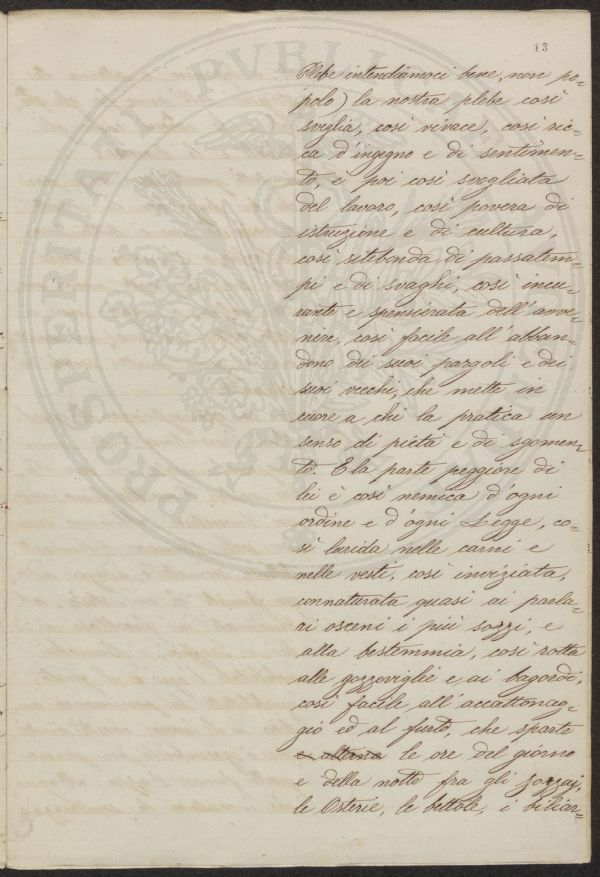 13
Plebe intendiamoci bene, non po=
polo) la nostra plebe così
sveglia, così vivace, così ric=
ca d'ingegno e di sentimen=
to, e poi così svogliata
del lavoro, così povera di
istruzione e di cultura,
così sitibonda di passatem=
pi e di svaghi, così incu=
rante e spensierata dell'avve=
nire, così facile all'abban=
dono dei suoi pargoli e dei
suoi vecchi, che mette in
cuore a chi la pratica un
senso di pietà e di sgomen=
to. E la parte peggiore di
lei è così nemica d'ogni
ordine e d'ogni Legge, co=
sì lurida nelle carni e
nelle vesti, così inviziata,
connaturata quasi ai parla=
ri osceni i più sozzi, e
alla bestemmia, così rotta
alle gozzoviglie e ai bagordi,
così facile all'accattonag=
gio ed al furto, che sparte
e alterna le ore del giorno
e della notte fra gli
le Osterie, le bettole, i biliar=
PROSPERITATI PVBLICAE